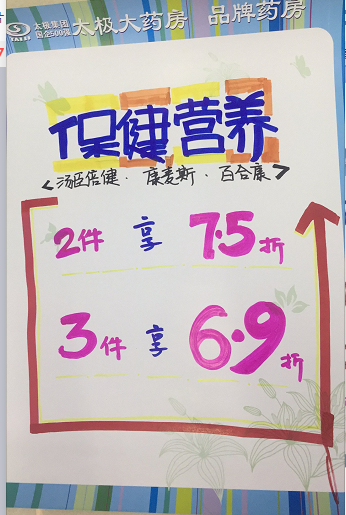 太极集团
国企500强
太极大药房 品牌药房
保健营养
<汤臣倍健·康麦斯·百合康>
2件 享 7.5折
3件 享 6.9折